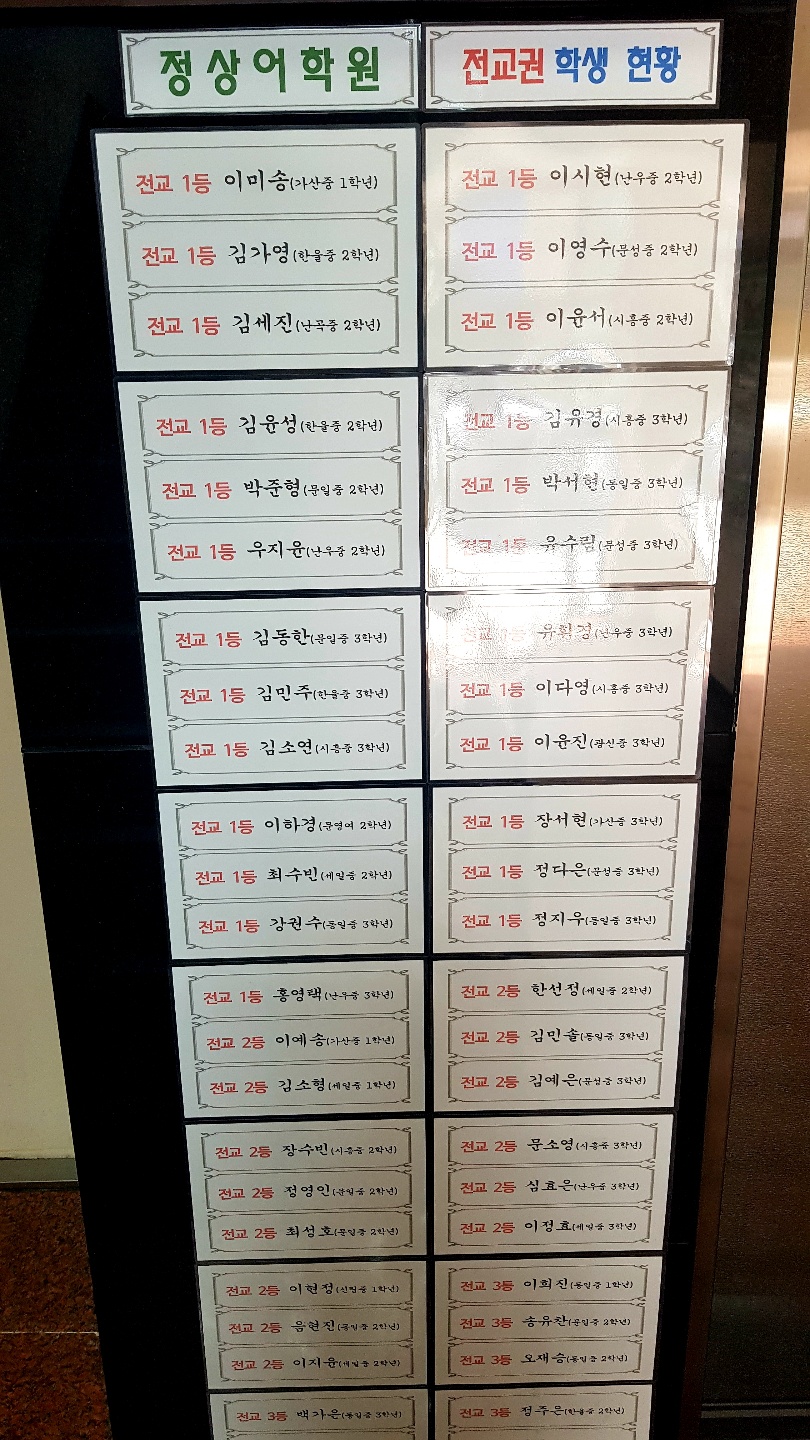 정상어학원
전교 1등 이미송(가산중 1학년)
전교 1등 김가영(한울중 2학년)
전교 1등 김세진(난곡중 2학년)
전교 1등 김윤성(한울중 2학년)
전교 1등 박준형(문일중 2학년)
전교 1등 우지윤(난우중 2학년)
전교 1등 김동한(문일중 3학년)
전교 1등 김민주(한울중 3학년)
전교 1등 김소연(시흥중 3학년)
전교 1등 이하경(문영여 2학년)
전교 1등 최수빈(세일중 2학년)
전교 1등 강권수(동일중 3학년)
전교 1등 홍영택(난우중 3학년)
전교 2등 이예송(가산중 1학년)
전교 2등 김소형(세일중 1학년)
전교 2등 장수빈(시흥중 2학년)
전교 2등 정영인(관일중 2학년)
전교 2등 최성호(문일중 2학년)
전교 2등 이현정(신림중 1학년)
전교 2등 음현진(동일중 2학년)
전교 2등 이지윤(세일중 2학년)
전교 3등 백가은(동일중 3학년)
전교권 학생 현황
전교 1등 이시현(난우중 2학년)
전교 1등 이영수(문성중 2학년)
전교 1등 이윤서(시흥중 2학년)
전교 1등 김유경(시흥중 3학년)
전교 1등 박서현(동일중 3학년)
전교 1등 유수림(문성중 3학년)
전교 1등 (난우중 3학년)
전교 1등 이다영(시흥중 3학년)
전교 1등 이윤진(광신중 3학년)
전교 1등 장서현(가산중 3학년)
전교 1등 정다은(문성중 3학년)
전교 1등 정지우(동일중 3학년)
전교 2등 한선정(세일중 2학년)
전교 2등 김민솔(동일중 3학년)
전교 2등 김예은(문성중 3학년)
전교 2등 문소영(시흥중 3학년)
전교 2등 심효은(난우중 3학년)
전교 2등 이정효(세일중 3학년)
전교 3등 이희진(동일중 1학년)
전교 3등 송유찬(문일중 2학년)
전교 3등 오재승(동일중 2학년)
전교 3등 정주은(한울중 2학년)